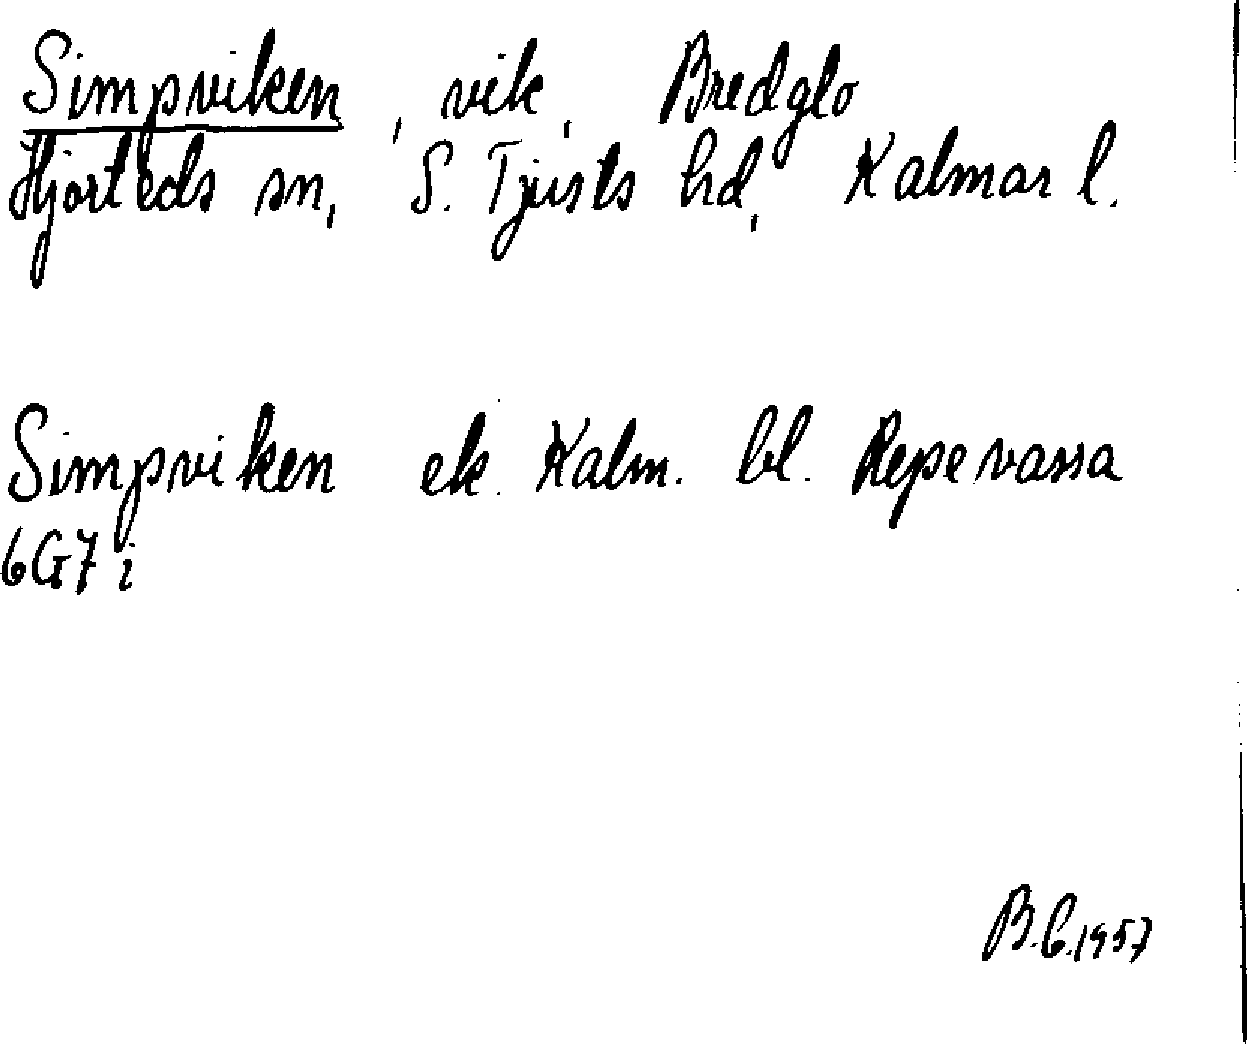 Simpviken, vik, Bredglo
Hjorteds sn, S. Tjusts hd, Kalmar l.
Simpviken ek. Kalm. bl. Repevassa
6G7i
B.C.1957